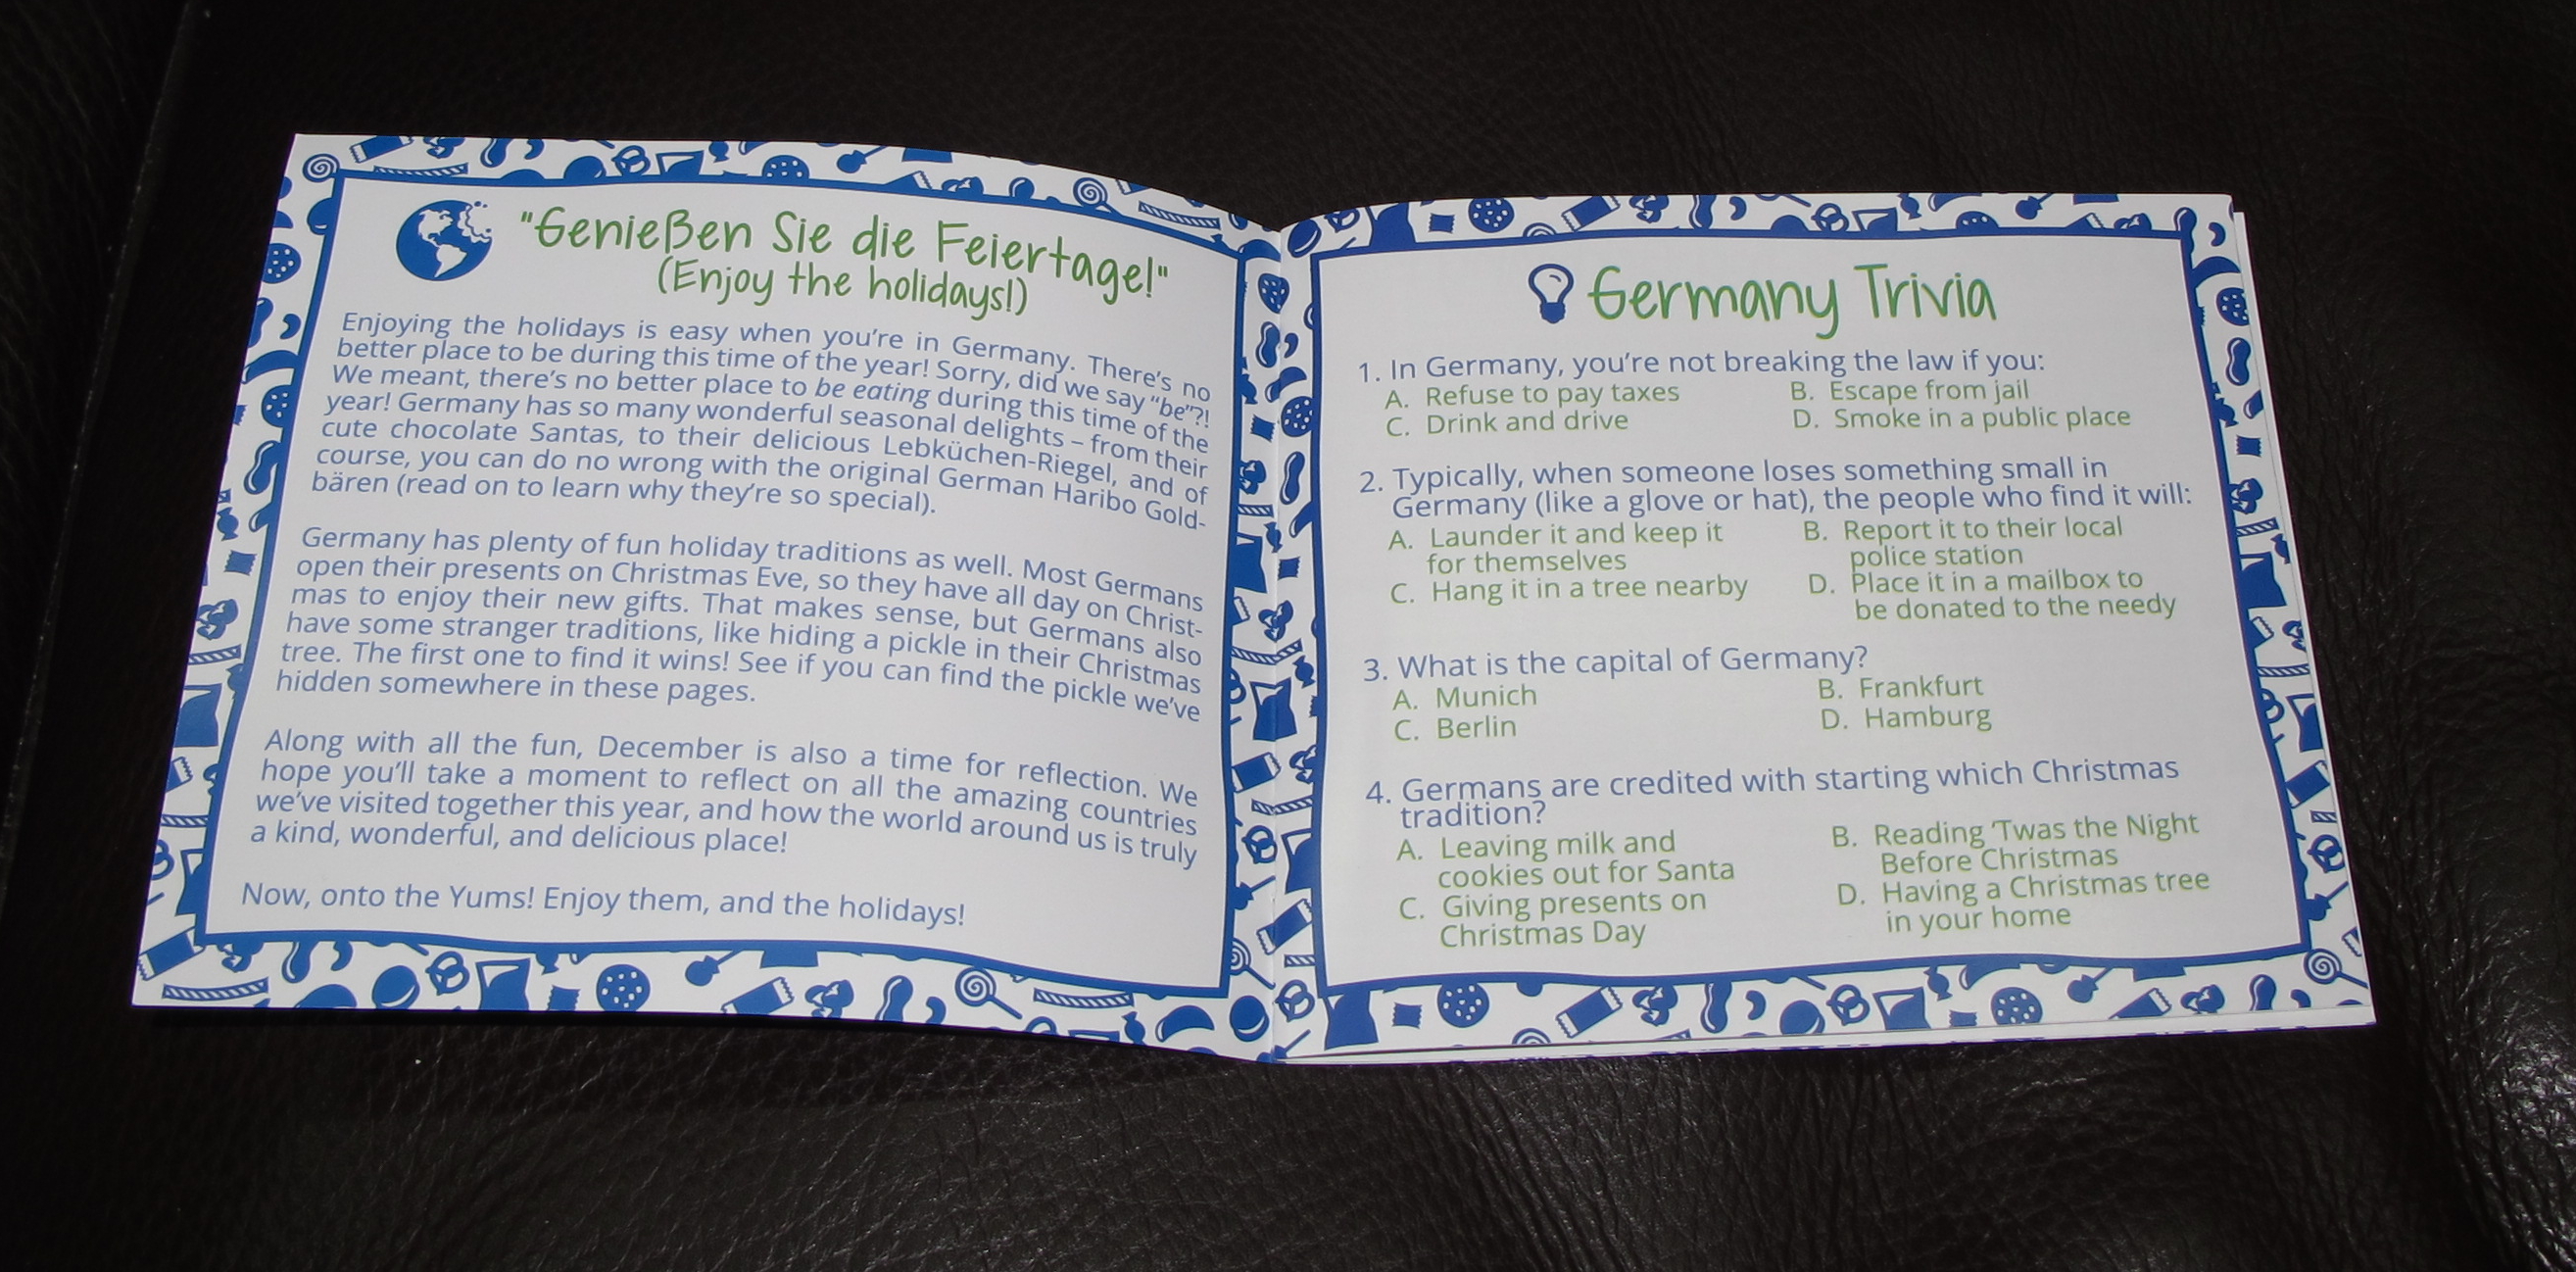 "Genießen Sie die Feiertage!"
(Enjoy the holidays!)
Enjoying the holidays is easy when you're in Germany. There's no
better place to be during this time of the year! Sorry, did we say "be"?!
We meant, there's no better place to be eating during this time of the
year! Germany has so many wonderful seasonal delights – from their
cute chocolate Santas, to their delicious Lebküchen-Riegel, and of
course, you can do no wrong with the original German Haribo Gold-
bären (read on to learn why they're so special).
Germany has plenty of fun holiday traditions as well. Most Germans
open their presents on Christmas Eve, so they have all day on Christ-
mas to enjoy their new gifts. That makes sense, but Germans also
have some stranger traditions, like hiding a pickle in their Christmas
tree. The first one to find it wins! See if you can find the pickle we've
hidden somewhere in these pages.
Along with all the fun, December is also a time for reflection. We
hope you'll take a moment to reflect on all the amazing countries
we've visited together this year, and how the world around us is truly
a kind, wonderful, and delicious place!
Now, onto the Yums! Enjoy them, and the holidays!
Germany Trivia
1. In Germany, you're not breaking the law if you:
A. Refuse to pay taxes
B. Escape from jail
C. Drink and drive
D. Smoke in a public place
2. Typically, when someone loses something small in
Germany (like a glove or hat), the people who find it will:
A. Launder it and keep it
for themselves
B. Report it to their local
police station
C. Hang it in a tree nearby
D. Place it in a mailbox to
be donated to the needy
3. What is the capital of Germany?
A. Munich
B. Frankfurt
C. Berlin
D. Hamburg
4. Germans are credited with starting which Christmas
tradition?
A. Leaving milk and
cookies out for Santa
B. Reading 'Twas the Night
Before Christmas
C. Giving presents on
Christmas Day
D. Having a Christmas tree
in your home